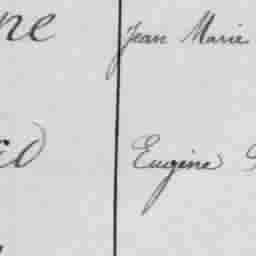 ne Jean Marie
Eugène